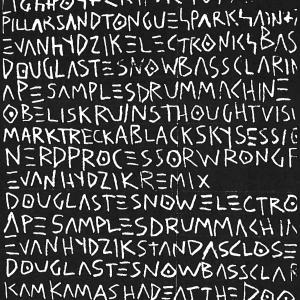 PILLARSANDTONGUESPARKSAINT
EVANHYDZIKELECTRONICSBAS
DOUGLASTESNOWBASSCLARIN
APESAMPLESDRUMMACHINE
OBELISKRUINSTHOUGHTVISI
MARKTRECKABLACKSKYSESSIO
NERDPROCESSORWRONGF
EVANHYDZIKREMIX
DOUGLASTESNOWELECTRO
APESAMPLESDRUMMACHIN
EVANHYDZIKSTANDASCLOSE
DOUGLASTESNOWBASSCLA
KAMKAMASHADEATTHEDOO